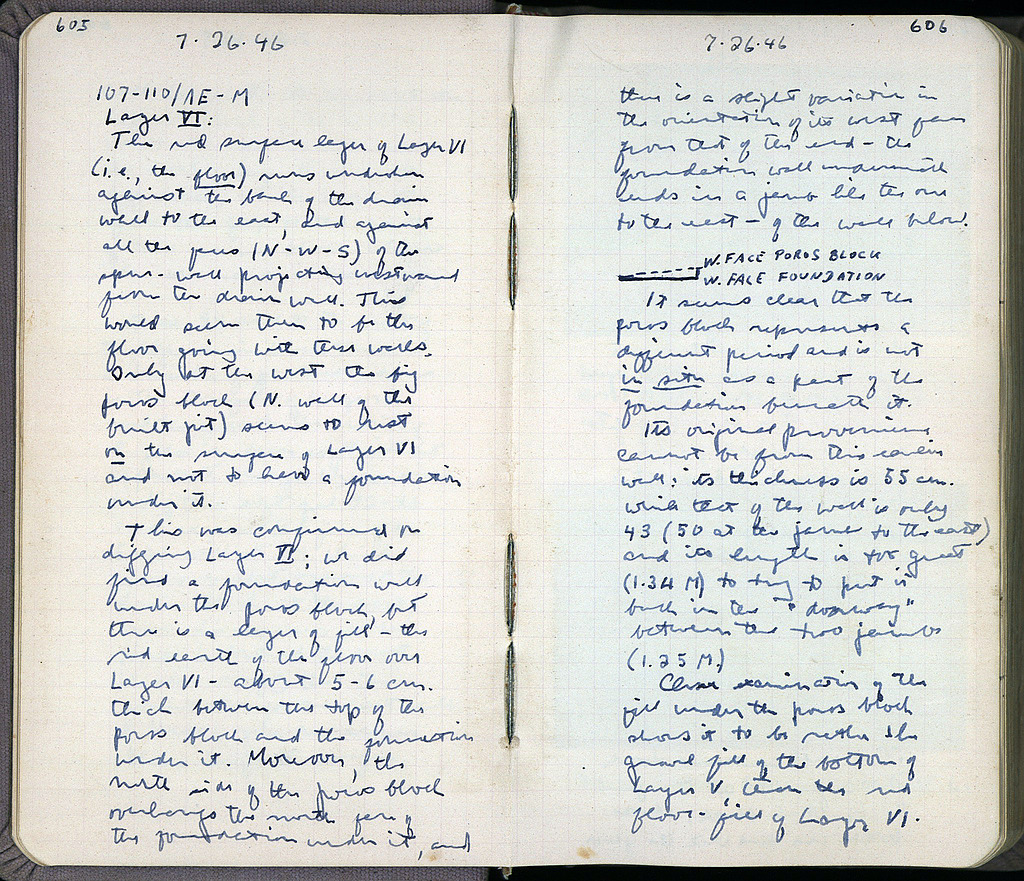 605
7·26·46
107-110/ΛE-M
Layer VI:
The red surface layer of Layer VI
(i.e., the floor) runs unbroken
against the bank of the drain
wall to the east, and against
all the faces (N-W-S) of the
spur-wall projecting westward
from the drain wall. This
would seem then to be the
floor going with these walls.
Only at the west the big
poros block (N. wall of the
built pit) seems to rest
on the surface of Layer VI
and not to have a foundation
under it.
This was confirmed on
digging Layer VI; we did
find a foundation wall
under the poros block, but
there is a layer of fill - the
red earth of the floor over
Layer VI - about 5-6 cm.
thick between the top of the
poros block and the foundation
under it. Moreover, the
north side of the poros block
overhangs the north face of
the foundation under it, and
606
7·26·46
there is a slight variation in
the orientation of its west face
from that of the end - the
foundation wall underneath
ends in a jamb like the one
to the east - of the wall below.
W. FACE POROS BLOCK
W. FACE FOUNDATION
It seems clear that the
poros block represents a
different period and is not
in situ as a part of the
foundation beneath it.
Its original provenience
cannot be from this earlier
wall; its thickness is 55 cm.
while that of the wall is only
43 (50 at the jamb to the east)
and its length is too great
(1.34 M) to try to put it
back in the "doorway"
between the two jambs
(1.25 M.)
Close examination of the
fill under the poros block
shows it to be rather the
gravel fill of the bottom of
Layer V than the red
floor-fill of Layer VI.